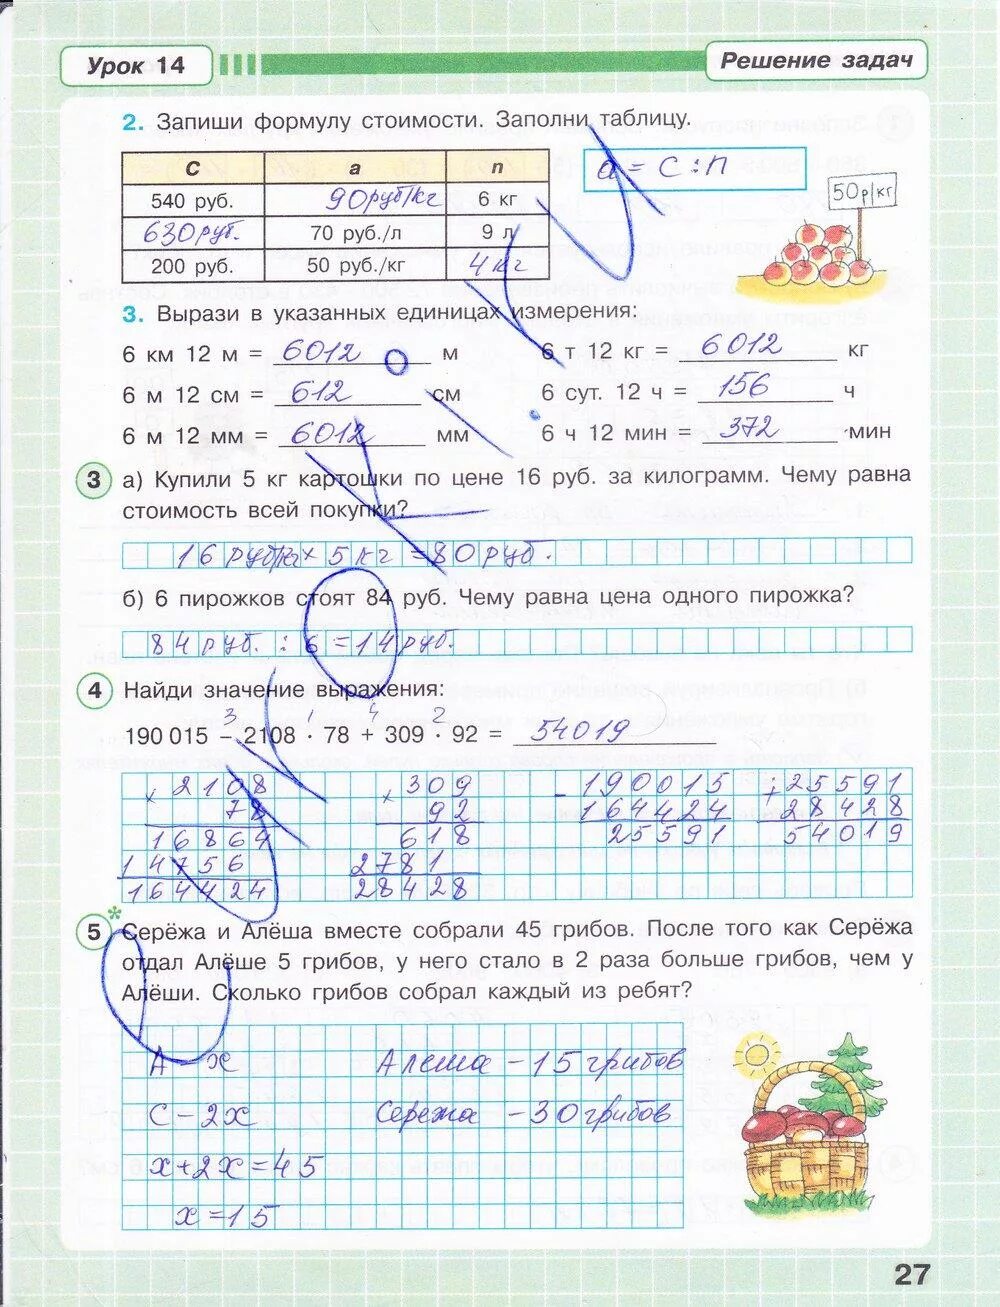 Урок 14
Решение задач
2. Запиши формулу стоимости. Заполни таблицу.
C a n
540 руб. 90руб/кг 6 кг
630руб. 70 руб./л 9 л
200 руб. 50 руб./кг 4кг
a = C : n
50р/кг
3. Вырази в указанных единицах измерения:
6 км 12 м = 6012 м 6 т 12 кг = 6012 кг
6 м 12 см = 612 см 6 сут. 12 ч = 156 ч
6 м 12 мм = 6012 мм 6 ч 12 мин = 372 мин
3 а) Купили 5 кг картошки по цене 16 руб. за килограмм. Чему равна
стоимость всей покупки?
16 руб/кг × 5 кг = 80 руб.
б) 6 пирожков стоят 84 руб. Чему равна цена одного пирожка?
84 руб. : 6 = 14 руб.
4 Найди значение выражения:
3 1 4 2
190 015 – 2108 · 78 + 309 · 92 = 54019
× 2108 × 309 - 190015 + 25591
78 92 164424 28428
16864 618 25591 54019
14756 2781
164424 28428
5* Серёжа и Алёша вместе собрали 45 грибов. После того как Серёжа
отдал Алёше 5 грибов, у него стало в 2 раза больше грибов, чем у
Алёши. Сколько грибов собрал каждый из ребят?
А – х Алеша – 15 грибов
С – 2х Сережа – 30 грибов
х + 2х = 45
х = 15
27